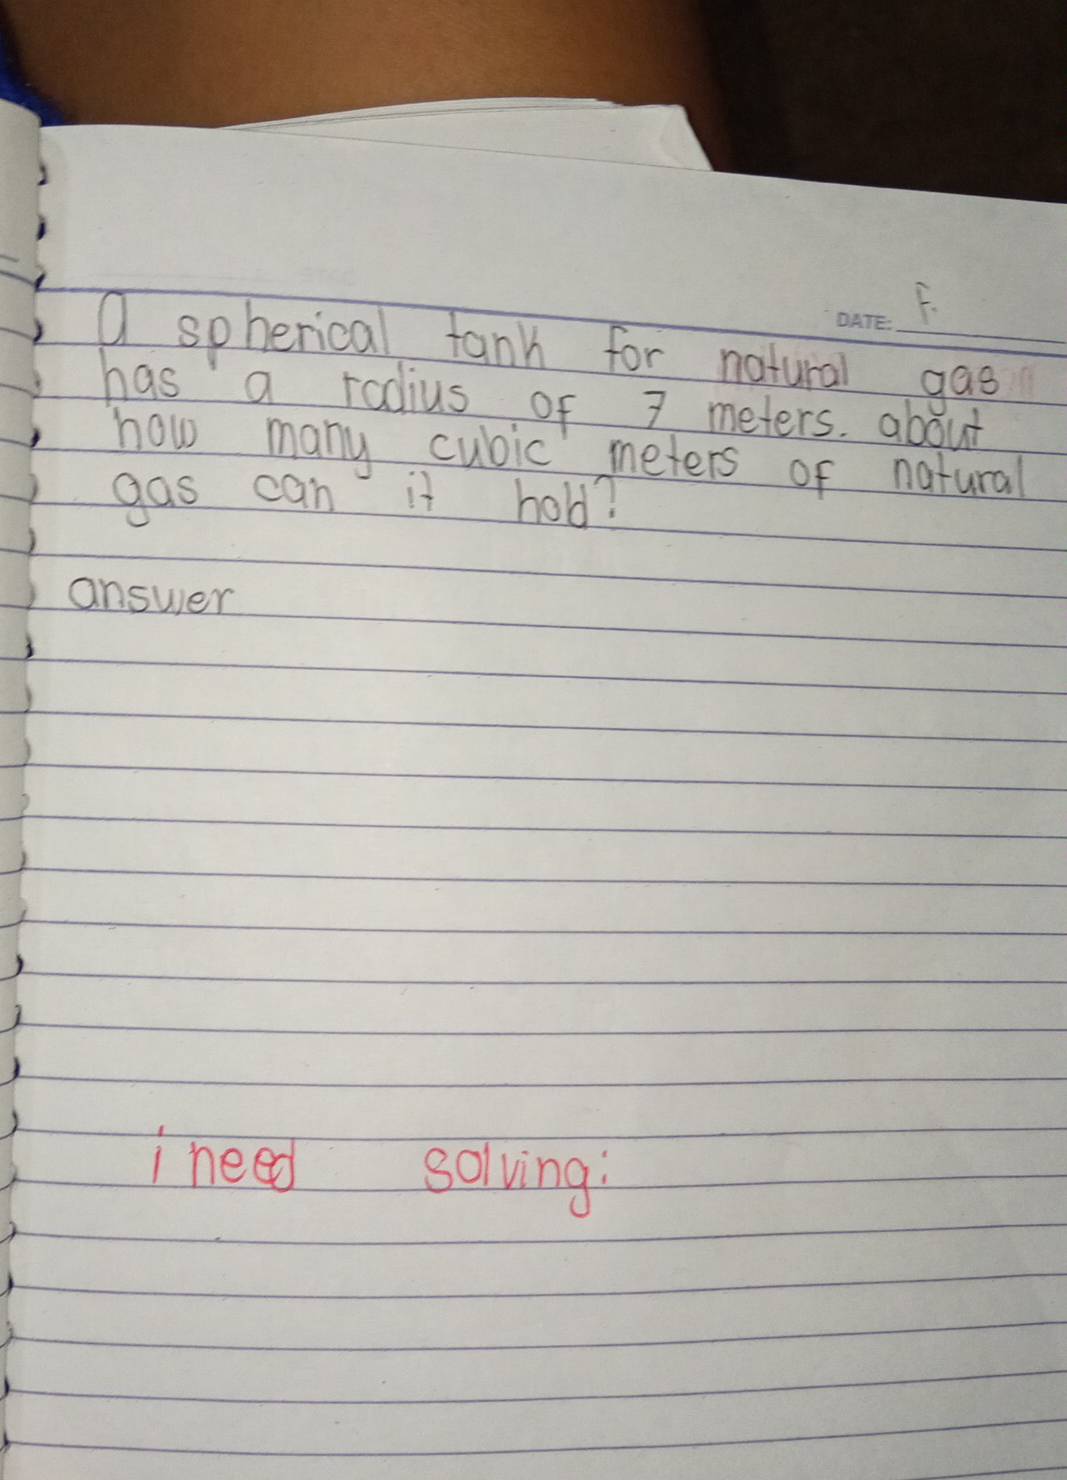 DATE: F.
A spherical tank for natural gas
has a radius of 7 meters. about
how many cubic meters of natural
gas can it hold?
answer
i need solving: